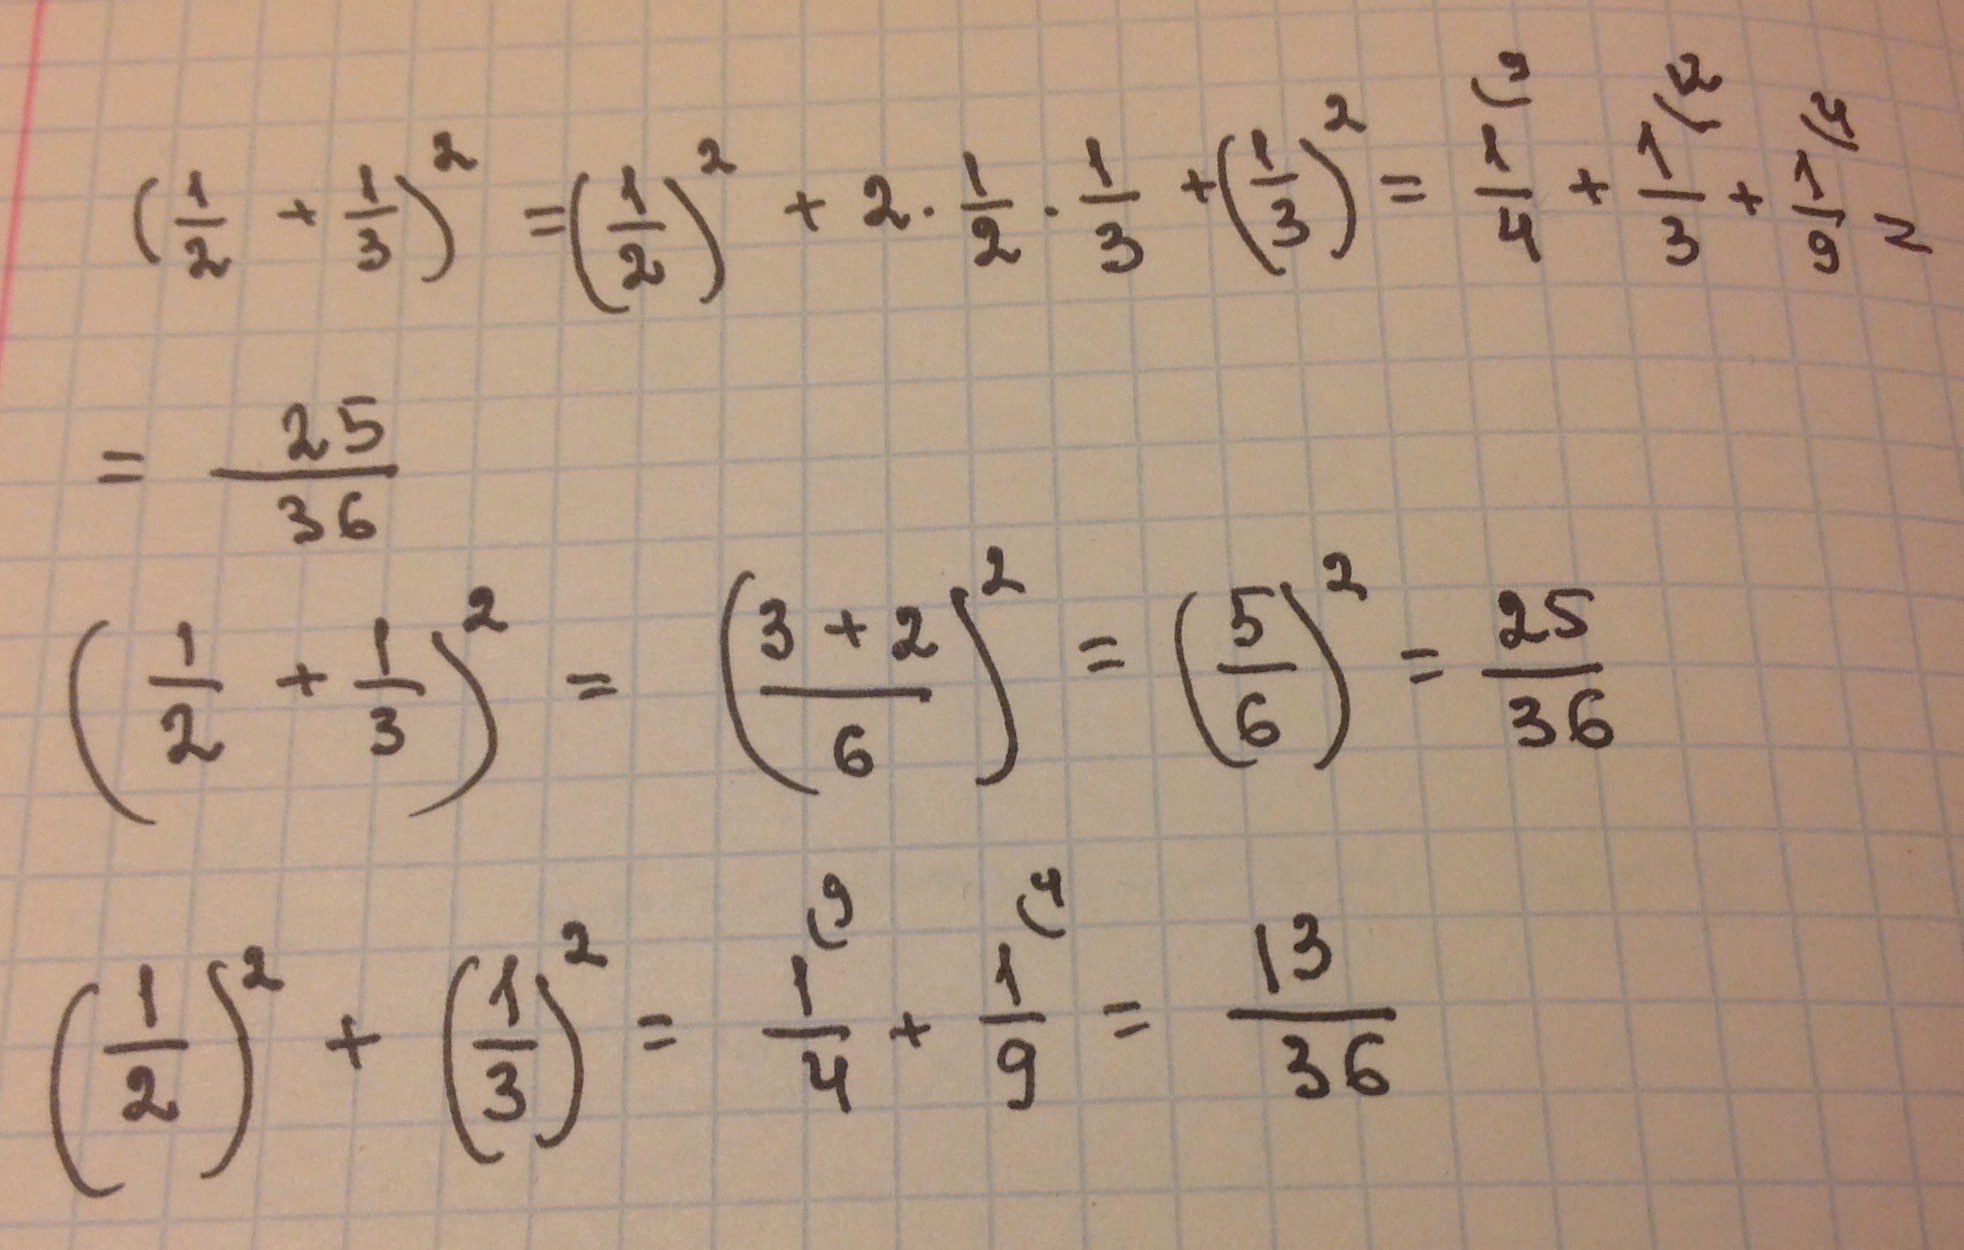 (1/2 + 1/3)² = (1/2)² + 2 · 1/2 · 1/3 + (1/3)² = 1/4⁽⁹ + 1/3⁽¹² + 1/9⁽⁴ =
= 25/36
(1/2 + 1/3)² = ((3 + 2)/6)² = (5/6)² = 25/36
(1/2)² + (1/3)² = 1/4⁽⁹ + 1/9⁽⁴ = 13/36